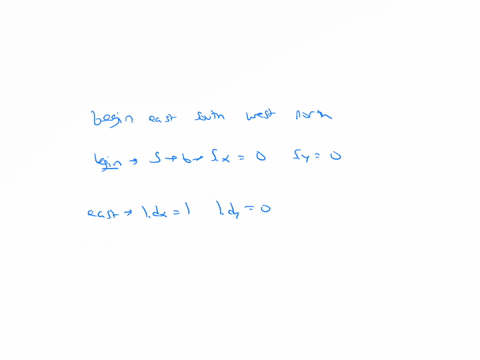 begin east south west north
begin → S → b → S.x = 0 S.y = 0
east → 1.dx = 1 1.dy = 0